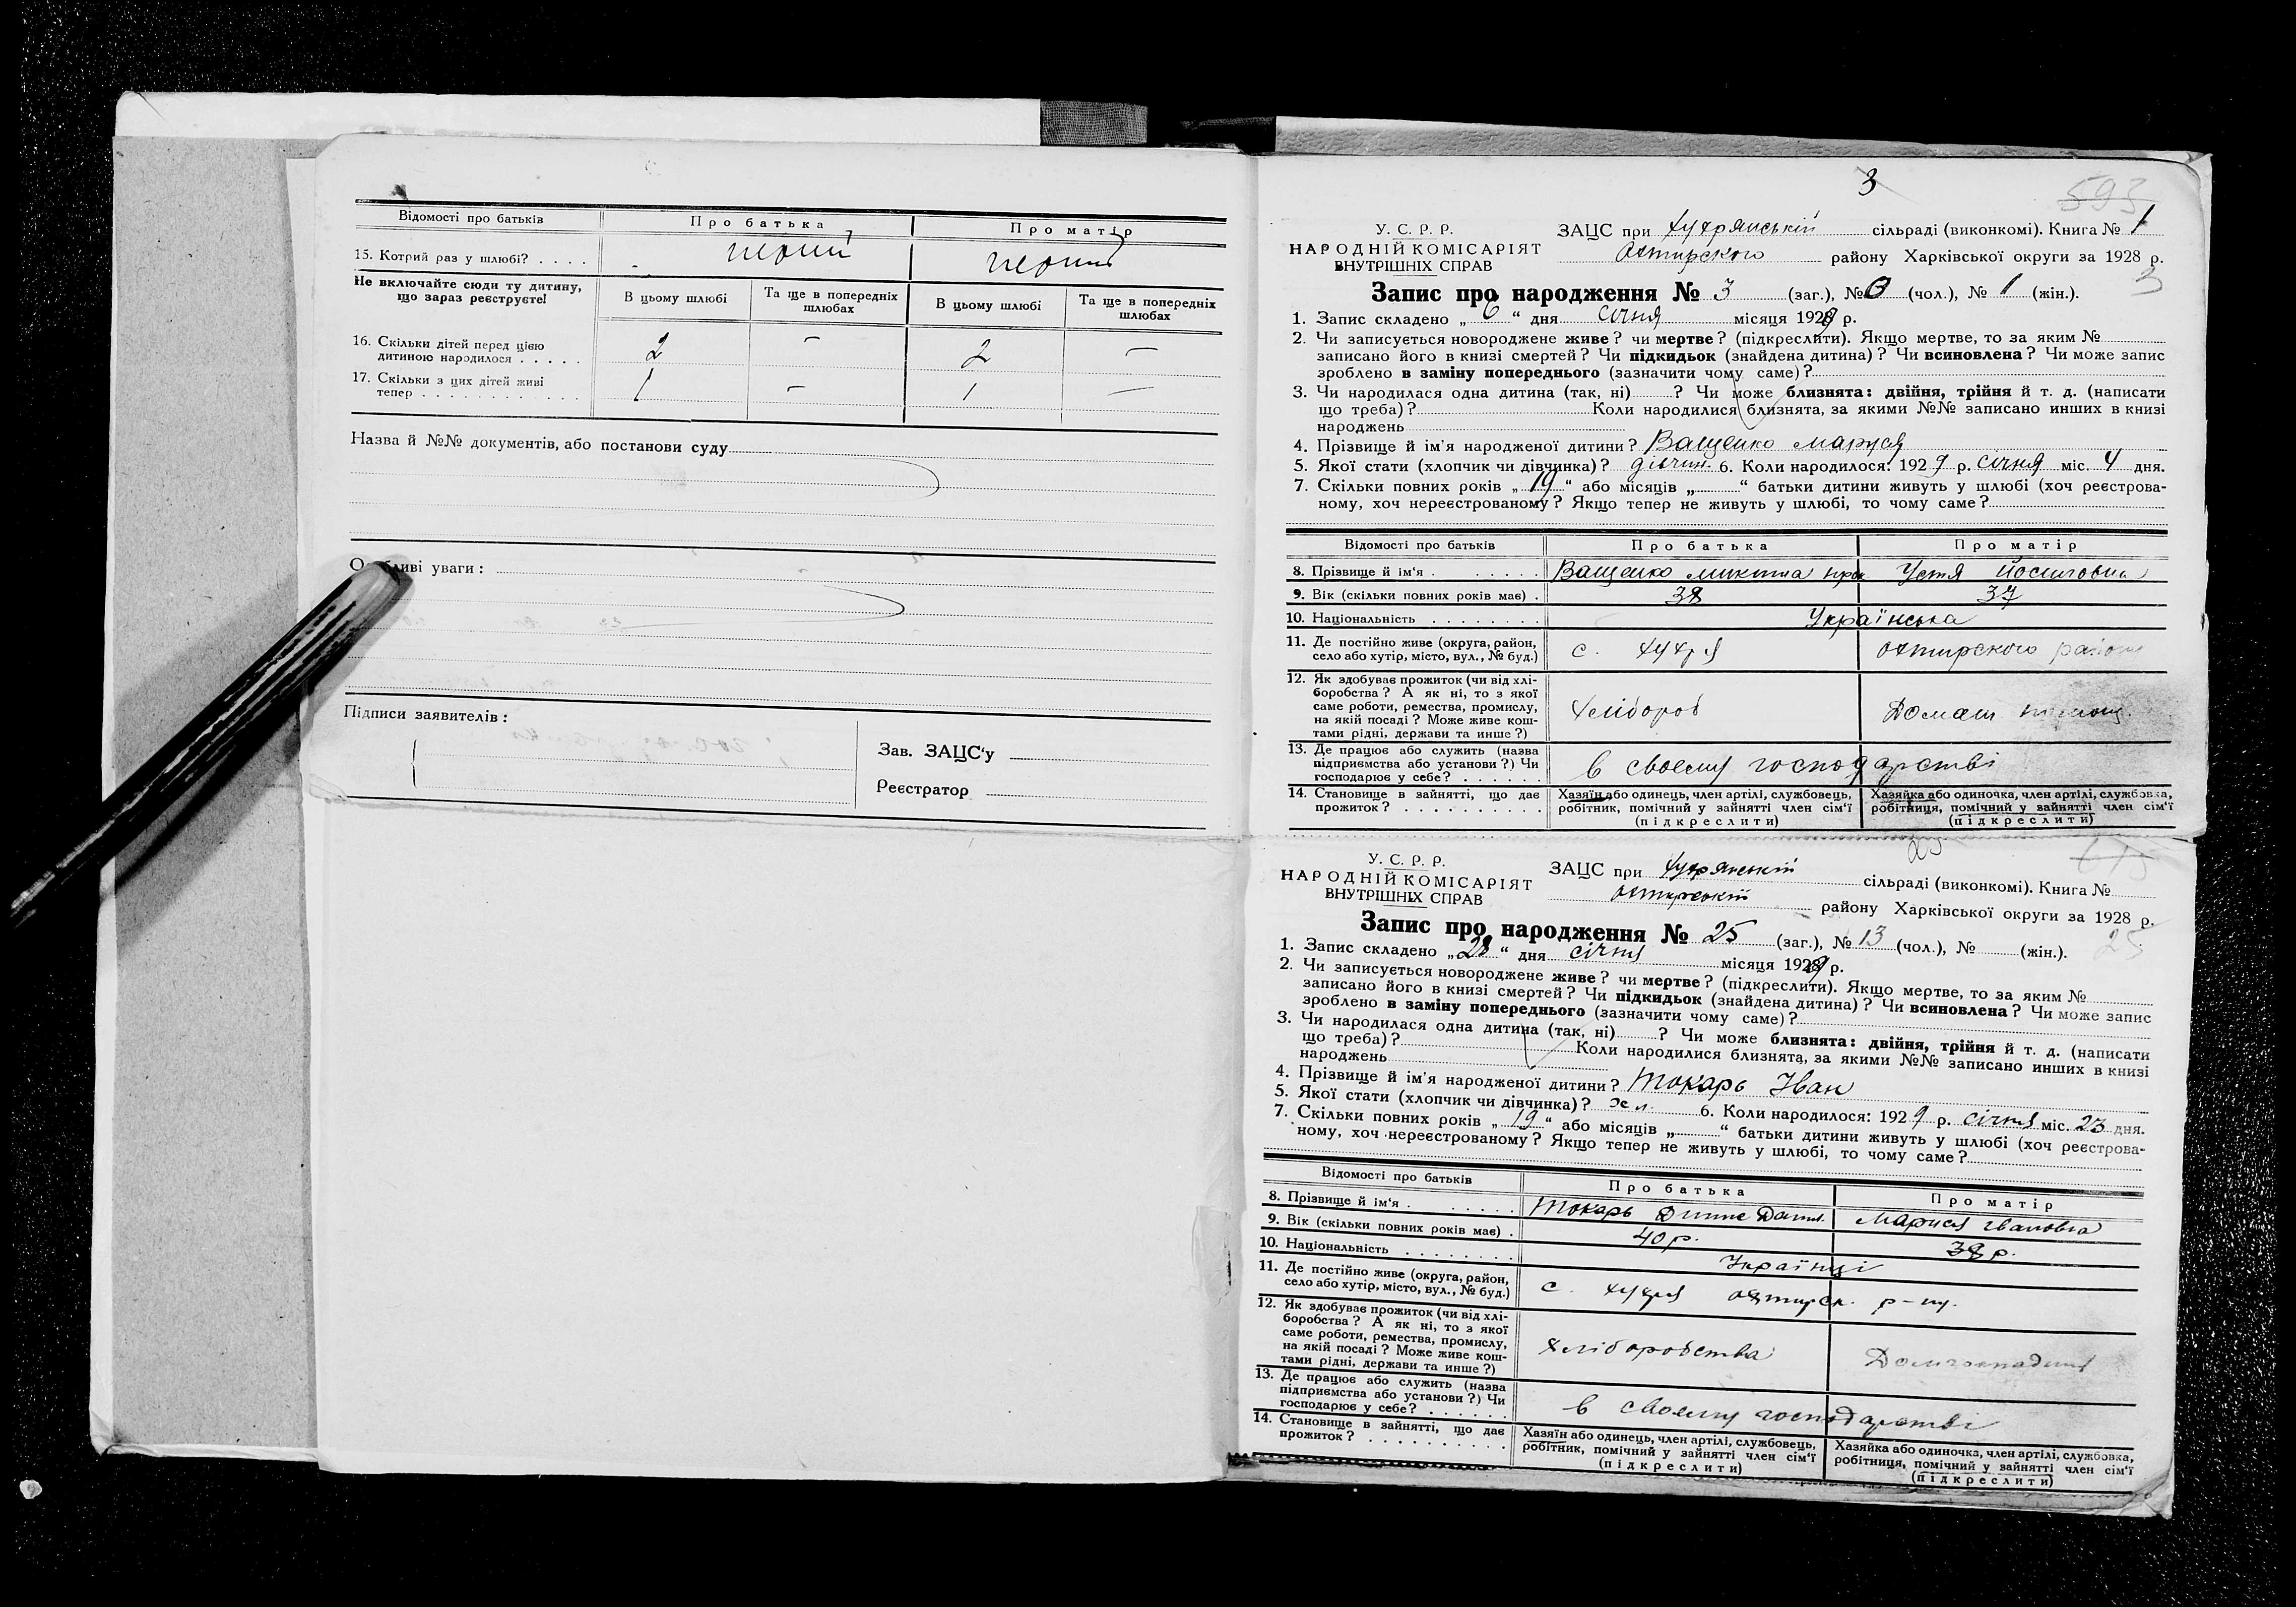 Відомості про батьків
Про батька
Про матір
15. Котрий раз у шлюбі? . . . .
перший
перший
Не включайте сюди ту дитину,
що зараз реєструєте!
В цьому шлюбі
Та ще в попередніх
шлюбах
В цьому шлюбі
Та ще в попередніх
шлюбах
16. Скільки дітей перед цією
дитиною народилося . . . . .
2
—
2
—
17. Скільки з цих дітей живі
тепер . . . . . . . . . . . .
1
—
1
—
Назва й №№ документів, або постанови суду
Особливі уваги:
Підписи заявителів:
Зав. ЗАЦС'у
Реєстратор
3
593
У. С. Р. Р.
НАРОДНІЙ КОМІСАРІЯТ
ВНУТРІШНІХ СПРАВ
ЗАЦС при Хухрянській сільраді (виконкомі). Книга № 1
Охтирского району Харківської округи за 1928 р.
3
Запис про народження № 3 (заг.), № 0 (чол.), № 1 (жін.).
1. Запис складено „ 6 “ дня січня місяця 1929 р.
2. Чи записується новороджене живе? чи мертве? (підкреслити). Якщо мертве, то за яким №
записано його в книзі смертей? Чи підкидьок (знайдена дитина)? Чи всиновлена? Чи може запис
зроблено в заміну попереднього (зазначити чому саме)?
3. Чи народилася одна дитина (так, ні)? Чи може близнята: двійня, трійня й т. д. (написати
що треба)? Коли народилися близнята, за якими №№ записано инших в книзі
народжень
4. Прізвище й ім'я народженої дитини? Ващенко Маруся
5. Якої стати (хлопчик чи дівчинка)? дівчин. 6. Коли народилося: 1929 р. січня міс. 4 дня.
7. Скільки повних років „ 19 “ або місяців „ “ батьки дитини живуть у шлюбі (хоч реєстрова-
ному, хоч нереєстрованому? Якщо тепер не живуть у шлюбі, то чому саме?
Відомості про батьків
Про батька
Про матір
8. Прізвище й ім'я . . . . . .
Ващенко Микита
Устя Йосиповна
9. Вік (скільки повних років має) .
38
37
10. Національність . . . . . . . .
Українська
11. Де постійно живе (округа, район,
село або хутір, місто, вул., № буд.)
с. Хухря
Охтирского району
12. Як здобуває прожиток (чи від хлі-
боробства? А як ні, то з якої
саме роботи, ремества, промислу,
на якій посаді? Може живе кош-
тами рідні, держави та инше?)
Хлібороб
Домаш
13. Де працює або служить (назва
підприємства або установи?) Чи
господарює у себе? . . . . . .
в своему господарстві
14. Становище в зайнятті, що дає
прожиток? . . . . . . . . . .
Хазяїн або одинець, член артілі, службовець,
робітник, помічний у зайнятті член сім'ї
(підкреслити)
Хазяйка або одиночка, член артілі, службовка,
робітниця, помічний у зайнятті член сім'ї
(підкреслити)
25
У. С. Р. Р.
НАРОДНІЙ КОМІСАРІЯТ
ВНУТРІШНІХ СПРАВ
ЗАЦС при Хухрянській сільраді (виконкомі). Книга №
Охтирській району Харківської округи за 1928 р.
25
Запис про народження № 25 (заг.), № 13 (чол.), № (жін.).
1. Запис складено „ 28 “ дня січня місяця 1929 р.
2. Чи записується новороджене живе? чи мертве? (підкреслити). Якщо мертве, то за яким №
записано його в книзі смертей? Чи підкидьок (знайдена дитина)? Чи всиновлена? Чи може запис
зроблено в заміну попереднього (зазначити чому саме)?
3. Чи народилася одна дитина (так, ні)? Чи може близнята: двійня, трійня й т. д. (написати
що треба)? Коли народилися близнята, за якими №№ записано инших в книзі
народжень
4. Прізвище й ім'я народженої дитини? Токарь Іван
5. Якої стати (хлопчик чи дівчинка)? хл. 6. Коли народилося: 1929 р. січня міс. 23 дня.
7. Скільки повних років „ 19 “ або місяців „ “ батьки дитини живуть у шлюбі (хоч реєстрова-
ному, хоч нереєстрованому? Якщо тепер не живуть у шлюбі, то чому саме?
Відомості про батьків
Про батька
Про матір
8. Прізвище й ім'я . . . . . .
Токарь
Маруся Івановна
9. Вік (скільки повних років має) .
40 р.
38 р.
10. Національність . . . . . . . .
Українці
11. Де постійно живе (округа, район,
село або хутір, місто, вул., № буд.)
с. Хухря Охтирск. р-ну.
12. Як здобуває прожиток (чи від хлі-
боробства? А як ні, то з якої
саме роботи, ремества, промислу,
на якій посаді? Може живе кош-
тами рідні, держави та инше?)
Хліборобства
13. Де працює або служить (назва
підприємства або установи?) Чи
господарює у себе? . . . . . .
в своему господарстві
14. Становище в зайнятті, що дає
прожиток? . . . . . . . . . .
Хазяїн або одинець, член артілі, службовець,
робітник, помічний у зайнятті член сім'ї
(підкреслити)
Хазяйка або одиночка, член артілі, службовка,
робітниця, помічний у зайнятті член сім'ї
(підкреслити)